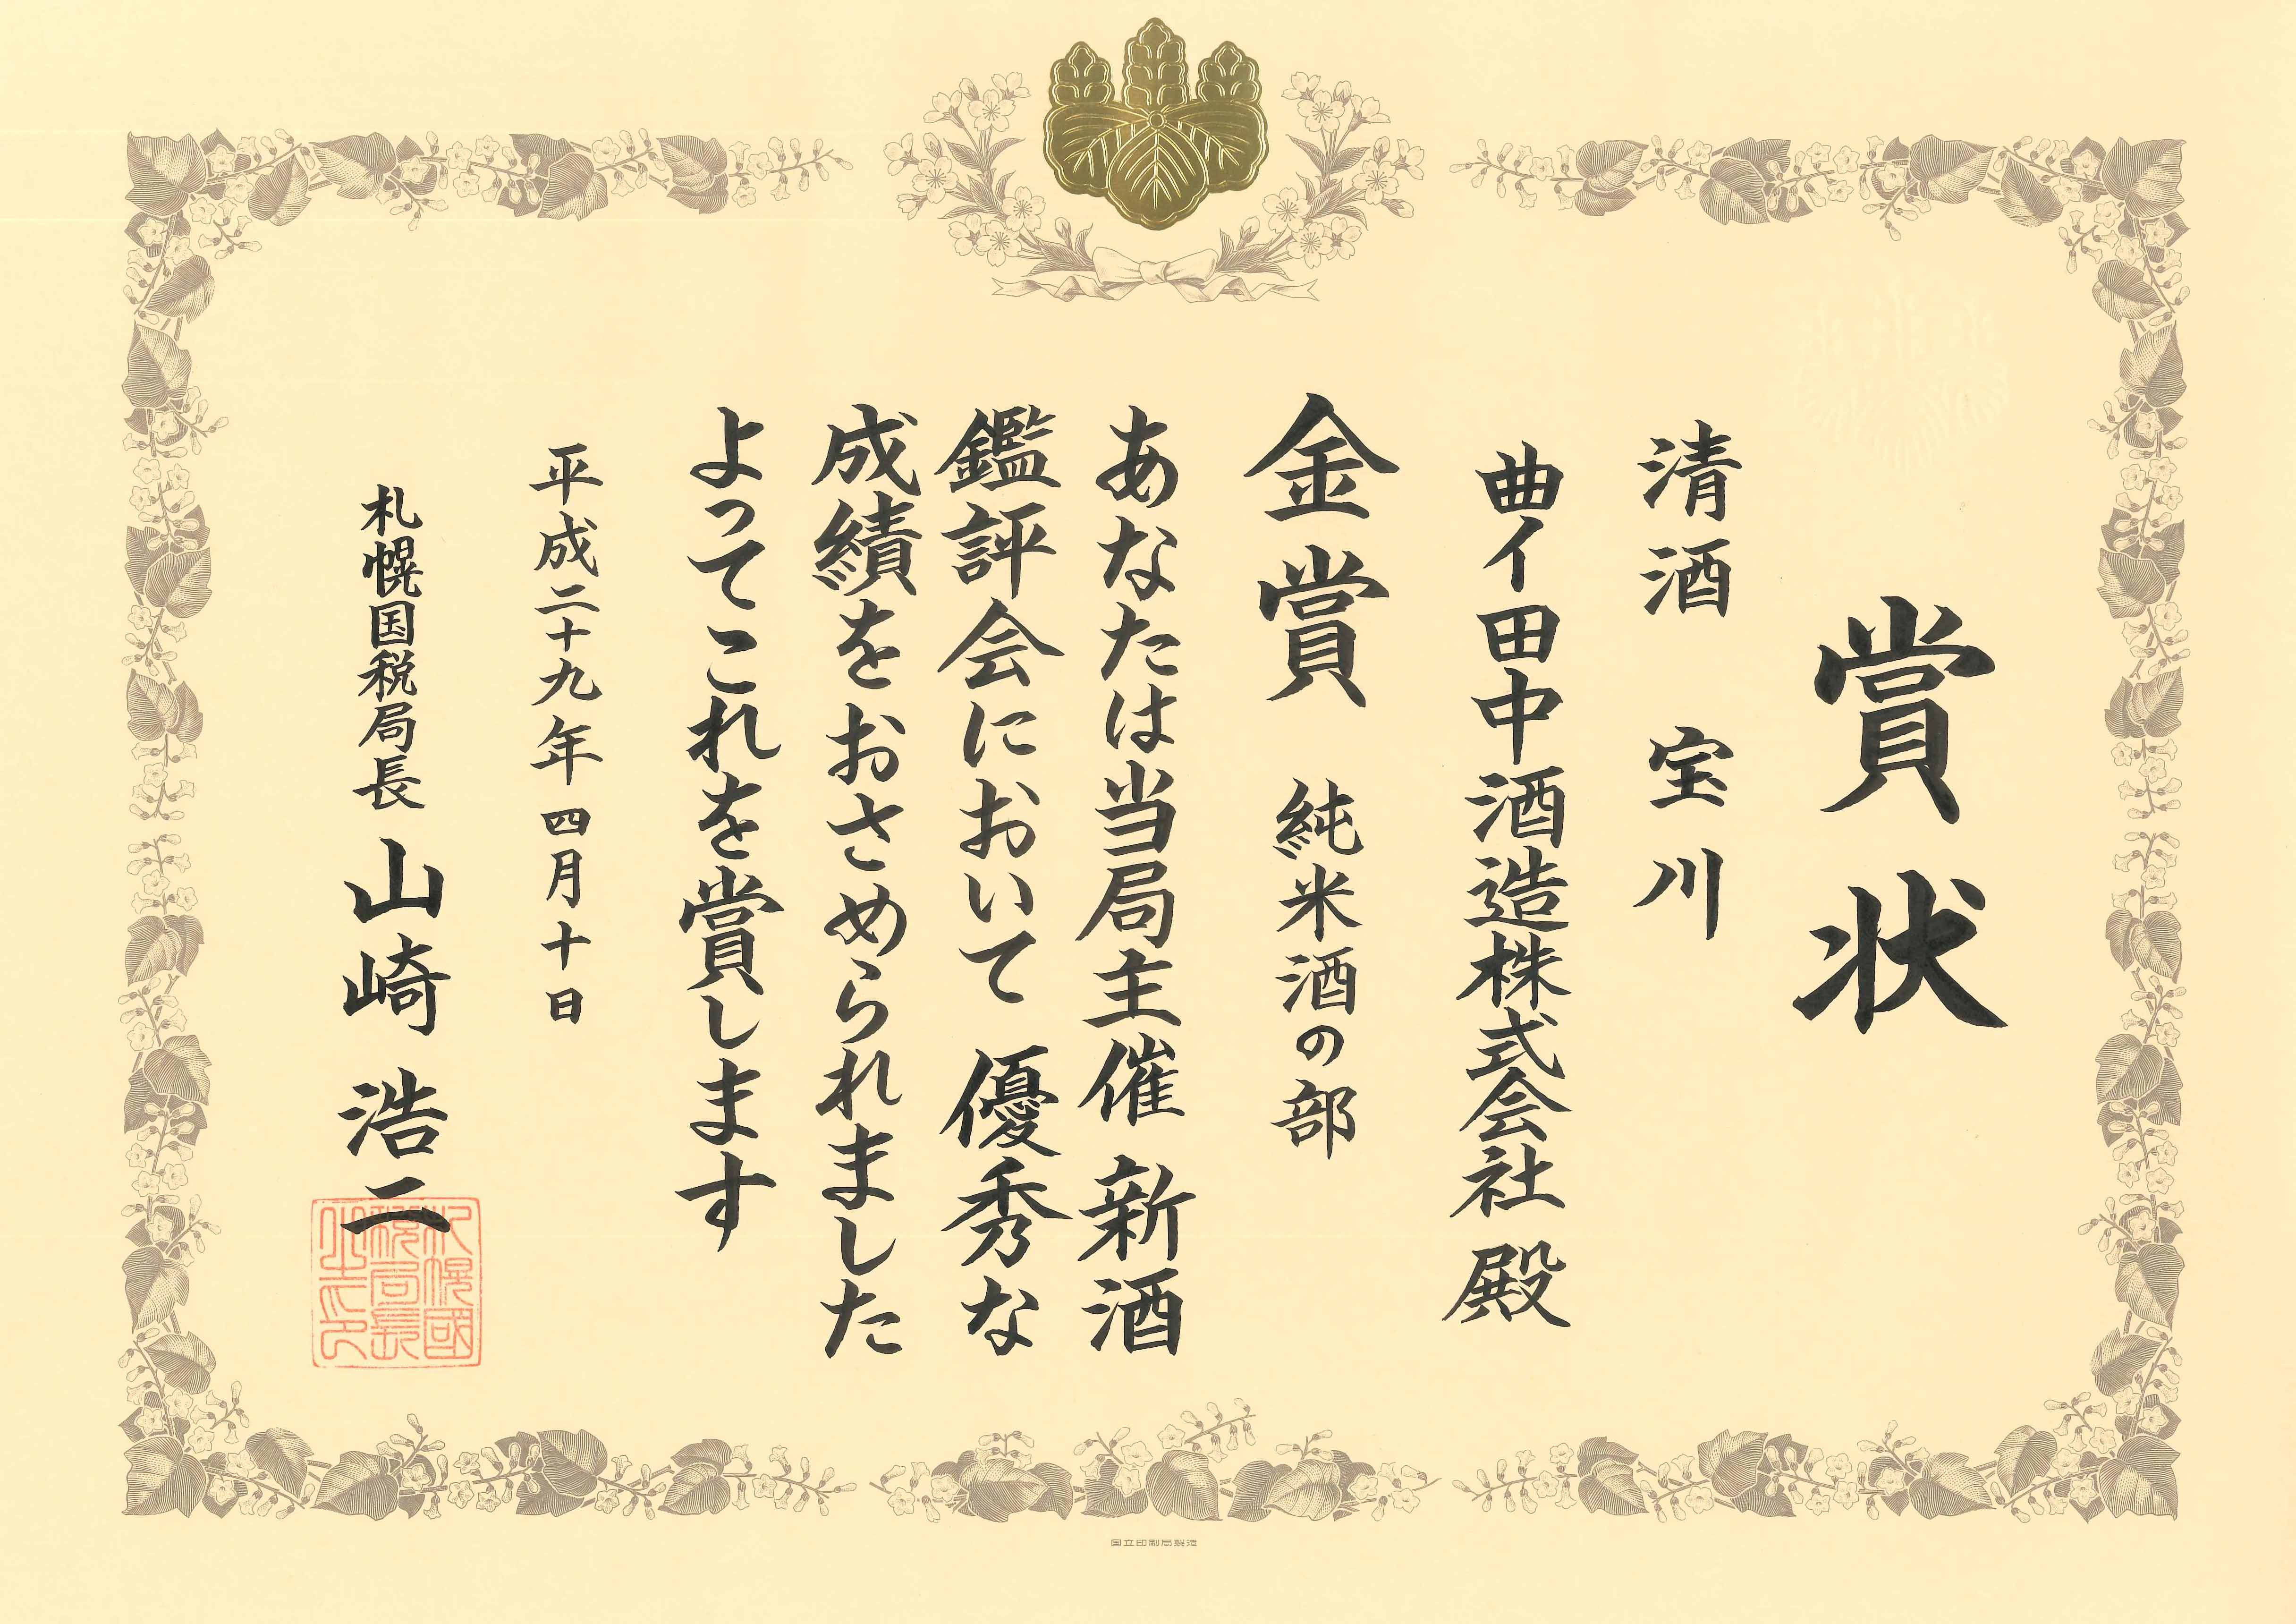 賞状
清酒 宝川
曲イ田中酒造株式会社 殿
金賞 純米酒の部
あなたは当局主催 新酒
鑑評会において 優秀な
成績をおさめられました
よってこれを賞します
平成二十九年四月十日
札幌国税局長 山崎 浩二
札幌國税局長之印
国立印刷局製造